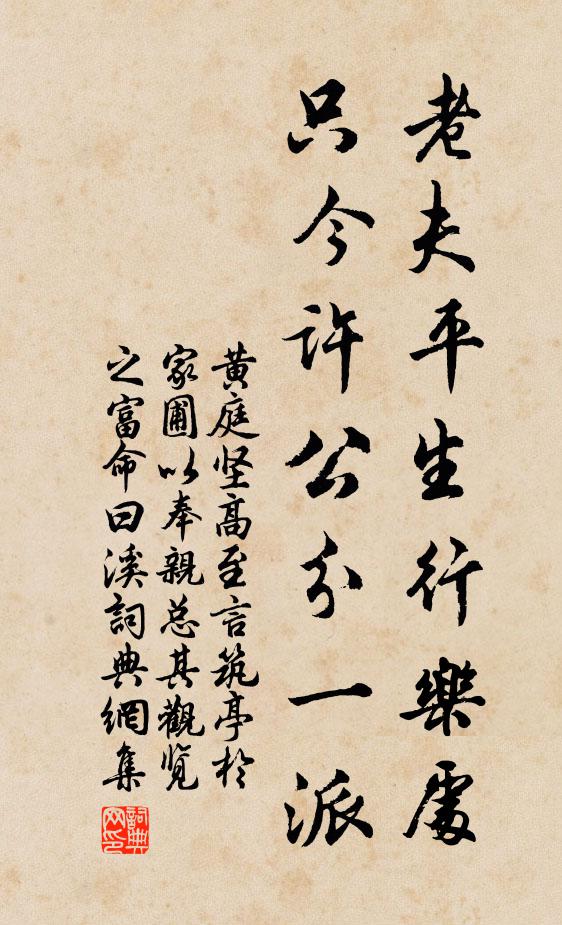 老夫平生行樂處
只今許公分一派
黄庭坚高至言筑亭於
家圃以奉親总其觀览
之富命曰溪詞典網集
詞典
网印